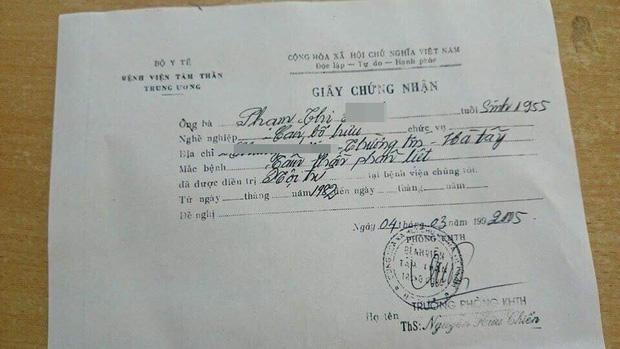 BỘ Y TẾ
BỆNH VIỆN TÂM THẦN
TRUNG ƯƠNG
CỘNG HÒA XÃ HỘI CHỦ NGHĨA VIỆT NAM
Độc lập - Tự do - Hạnh phúc
GIẤY CHỨNG NHẬN
Ông bà Phạm Thị tuổi Sinh 1955
Nghề nghiệp Cán bộ hưu chức vụ
Địa chỉ Thường Tín - Hà Tây
Mắc bệnh Tâm thần phân liệt
đã được điều trị Nội trú tại bệnh viện chúng tôi.
Từ ngày tháng năm 1982 đến ngày tháng năm
Đề nghị
Ngày 04 tháng 03 năm 199 2005
PHÒNG KHTH
BỆNH VIỆN
TRƯỞNG PHÒNG KHTH
Họ tên
ThS: Nguyễn Hữu Chiến